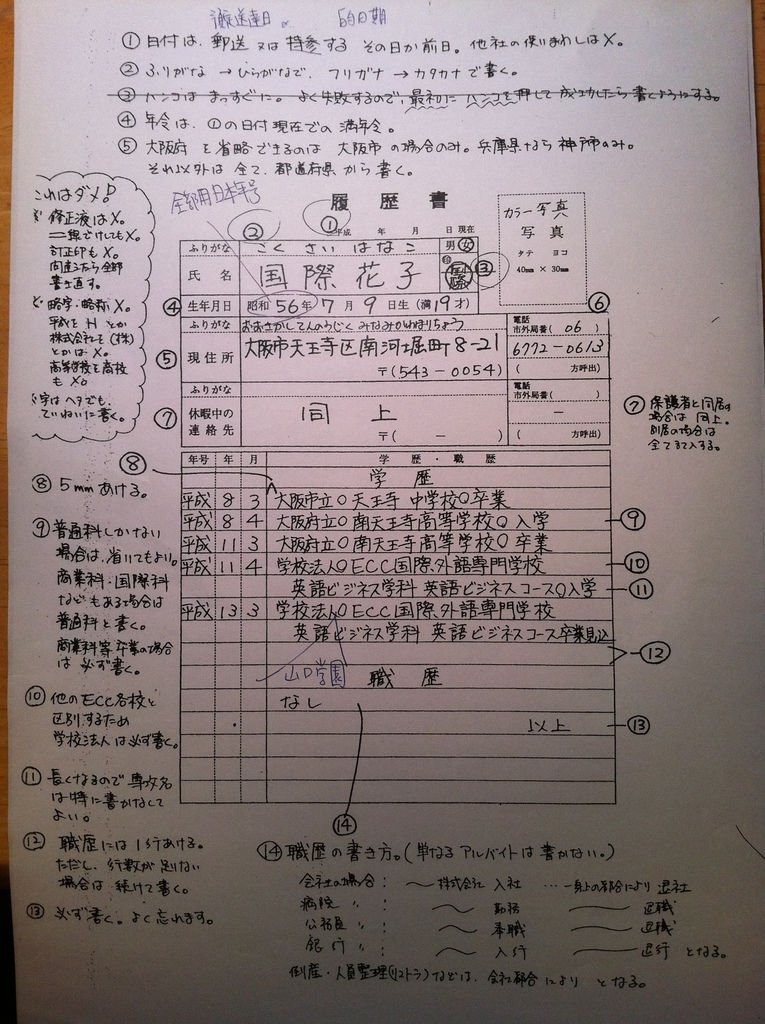 ① 日付は、郵送 又は 持参する その日か前日。他社の使いまわしはX。
② ふりがな → ひらがなで、フリガナ → カタカナで書く。
③ ハンコは まっすぐに。よく失敗するので、最初に ハンコを押して成功したら書くようにする。
④ 年令は、①の日付現在での満年令。
⑤ 大阪府 を省略できるのは 大阪市 の場合のみ。兵庫県なら 神戸市のみ。
それ以外は 全て、都道府県 から 書く。
全部用日本年号
これはダメ!
修正液はX。
二線でけしてもX。
訂正印もX。
間違ったら全部
書き直す。
略字・略称 X。
平成を H とか
株式会社を(株)
とかは X。
高等学校を高校
も X。
字は ヘタでも、
ていねいに書く。
履歴書
② ①
平成 年 月 日 現在
ふりがな こくさい はなこ 男・女
氏名 国際 花子 印 ③
④ 生年月日 昭和 56年 7月 9日生 (満 19才)
カラー写真
写真
タテ ヨコ
40mm × 30mm
⑥
ふりがな おおさかしてんのうじく みなみかわほりちょう
電話
市外局番( 06 )
⑤ 現住所 大阪市天王寺区南河堀町 8-21
〒(543-0054)
6772-0613
( 方呼出)
ふりがな
電話
市外局番( )
⑦ 休暇中の
連絡先
同 上
〒( - )
ー
( 方呼出)
⑦ 保護者と同居の
場合は 同上。
別居の場合は
全て記入する。
⑧
年号 年 月 学歴・職歴
学 歴
平成 8 3 大阪市立○天王寺 中学校○卒業
平成 8 4 大阪府立○南天王寺高等学校○入学 ⑨
平成 11 3 大阪府立○南天王寺高等学校○卒業
平成 11 4 学校法人○ECC国際外語専門学校 ⑩
英語ビジネス学科 英語ビジネスコース○入学 ⑪
平成 13 3 学校法人○ECC国際外語専門学校
英語ビジネス学科 英語ビジネスコース卒業見込
⑫
山口学園 職 歴
なし
以上 ⑬
⑭
⑧ 5mmあける。
⑨ 普通科しかない
場合は、省いてもよい。
商業科・国際科
などもある場合は
普通科と書く。
商業科等卒業の場合
は 必ず書く。
⑩ 他のECC各校と
区別するため
学校法人は必ず書く。
⑪ 長くなるので 専攻名
は特に書かなくて
よい。
⑫ 職歴には1行あける。
ただし、行数が足りない
場合は 続けて書く。
⑬ 必ず書く。よく忘れます。
⑭ 職歴の書き方。(単なる アルバイトは 書かない。)
会社の場合: ～ 株式会社 入社 … 一身上の都合により 退社
病院 〃 : ～ 勤務 ～ 退職
公務員 〃 : ～ 奉職 ～ 退職
銀行 〃 : ～ 入行 ～ 退行 となる。
倒産・人員整理(リストラ)などは、会社都合により となる。